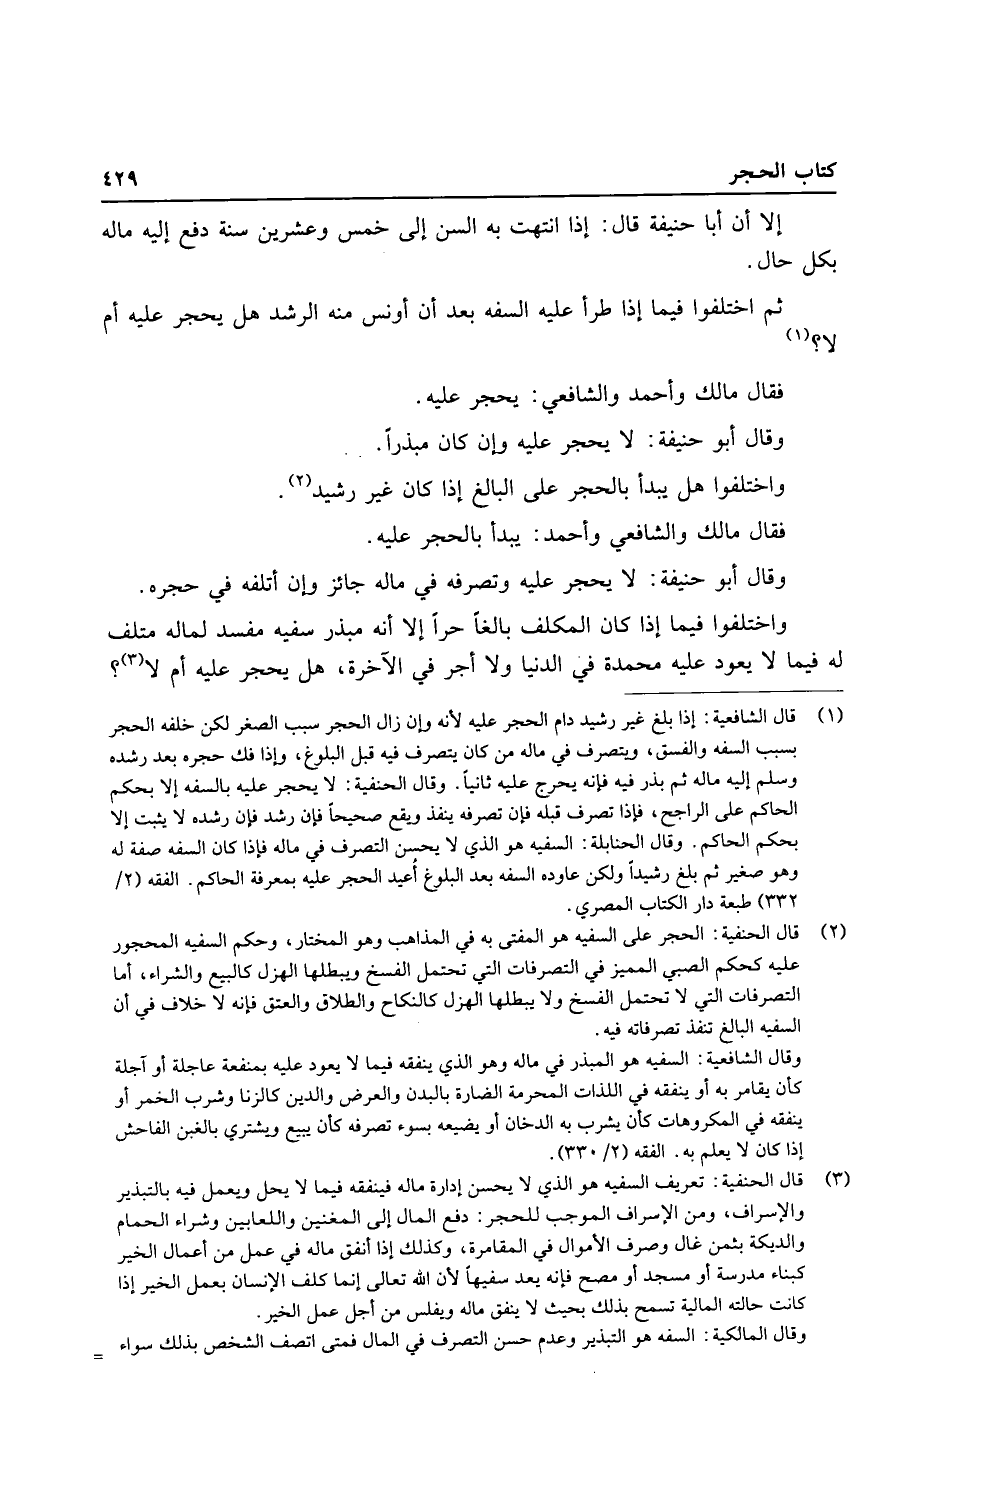 كتاب الحجر ٤٢٩
إلا أن أبا حنيفة قال: إذا انتهت به السن إلى خمس وعشرين سنة دفع إليه ماله
بكل حال.
ثم اختلفوا فيما إذا طرأ عليه السفه بعد أن أونس منه الرشد هل يحجر عليه أم
لا؟(١)
فقال مالك وأحمد والشافعي: يحجر عليه.
وقال أبو حنيفة: لا يحجر عليه وإن كان مبذراً.
واختلفوا هل يبدأ بالحجر على البالغ إذا كان غير رشيد(٢).
فقال مالك والشافعي وأحمد: يبدأ بالحجر عليه.
وقال أبو حنيفة: لا يحجر عليه وتصرفه في ماله جائز وإن أتلفه في حجره.
واختلفوا فيما إذا كان المكلف بالغاً حراً إلا أنه مبذر سفيه مفسد لماله متلف
له فيما لا يعود عليه محمدة في الدنيا ولا أجر في الآخرة، هل يحجر عليه أم لا(٣)؟
(١) قال الشافعية: إذا بلغ غير رشيد دام الحجر عليه لأنه وإن زال الحجر سبب الصغر لكن خلفه الحجر
بسبب السفه والفسق، ويتصرف في ماله من كان يتصرف فيه قبل البلوغ، وإذا فك حجره بعد رشده
وسلم إليه ماله ثم بذر فيه فإنه يحرج عليه ثانياً. وقال الحنفية: لا يحجر عليه بالسفه إلا بحكم
الحاكم على الراجح، فإذا تصرف قبله فإن تصرفه ينفذ ويقع صحيحاً فإن رشد فإن رشده لا يثبت إلا
بحكم الحاكم. وقال الحنابلة: السفيه هو الذي لا يحسن التصرف في ماله فإذا كان السفه صفة له
وهو صغير ثم بلغ رشيداً ولكن عاوده السفه بعد البلوغ أُعيد الحجر عليه بمعرفة الحاكم. الفقه (٢/
٣٣٢) طبعة دار الكتاب المصري.
(٢) قال الحنفية: الحجر على السفيه هو المفتى به في المذاهب وهو المختار، وحكم السفيه المحجور
عليه كحكم الصبي المميز في التصرفات التي تحتمل الفسخ ويبطلها الهزل كالبيع والشراء، أما
التصرفات التي لا تحتمل الفسخ ولا يبطلها الهزل كالنكاح والطلاق والعتق فإنه لا خلاف في أن
السفيه البالغ تنفذ تصرفاته فيه.
وقال الشافعية: السفيه هو المبذر في ماله وهو الذي ينفقه فيما لا يعود عليه بمنفعة عاجلة أو آجلة
كأن يقامر به أو ينفقه في اللذات المحرمة الضارة بالبدن والعرض والدين كالزنا وشرب الخمر أو
ينفقه في المكروهات كأن يشرب به الدخان أو يضيعه بسوء تصرفه كأن يبيع ويشتري بالغبن الفاحش
إذا كان لا يعلم به. الفقه (٢/ ٣٣٠).
(٣) قال الحنفية: تعريف السفيه هو الذي لا يحسن إدارة ماله فينفقه فيما لا يحل ويعمل فيه بالتبذير
والإسراف، ومن الإسراف الموجب للحجر: دفع المال إلى المغنين واللعابين وشراء الحمام
والديكة بثمن غال وصرف الأموال في المقامرة، وكذلك إذا أنفق ماله في عمل من أعمال الخير
كبناء مدرسة أو مسجد أو مصح فإنه يعد سفيهاً لأن الله تعالى إنما كلف الإنسان بعمل الخير إذا
كانت حالته المالية تسمح بذلك بحيث لا ينفق ماله ويفلس من أجل عمل الخير.
وقال المالكية: السفه هو التبذير وعدم حسن التصرف في المال فمتى اتصف الشخص بذلك سواء =